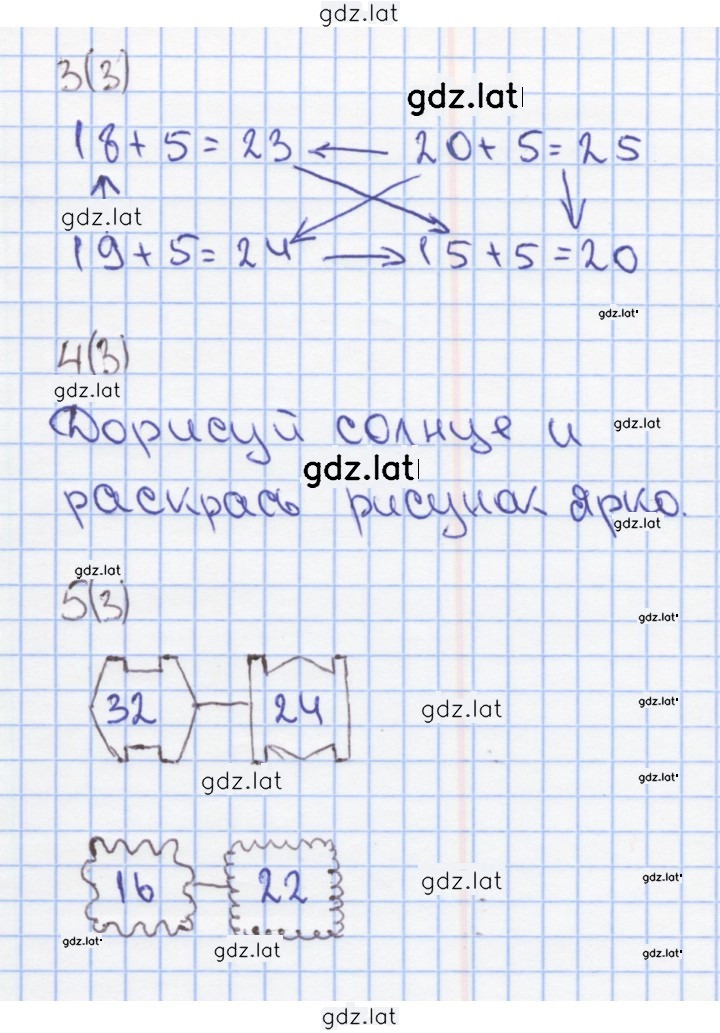 gdz.lat
3(3)
gdz.lat
18 + 5 = 23 ← 20 + 5 = 25
gdz.lat
19 + 5 = 24 → 15 + 5 = 20
gdz.lat
4(3)
gdz.lat
Дорисуй солнце и
gdz.lat
gdz.lat
раскрась рисунок ярко.
gdz.lat
gdz.lat
5(3)
gdz.lat
32 24
gdz.lat
gdz.lat
gdz.lat
gdz.lat
16 22
gdz.lat
gdz.lat
gdz.lat
gdz.lat
gdz.lat
gdz.lat